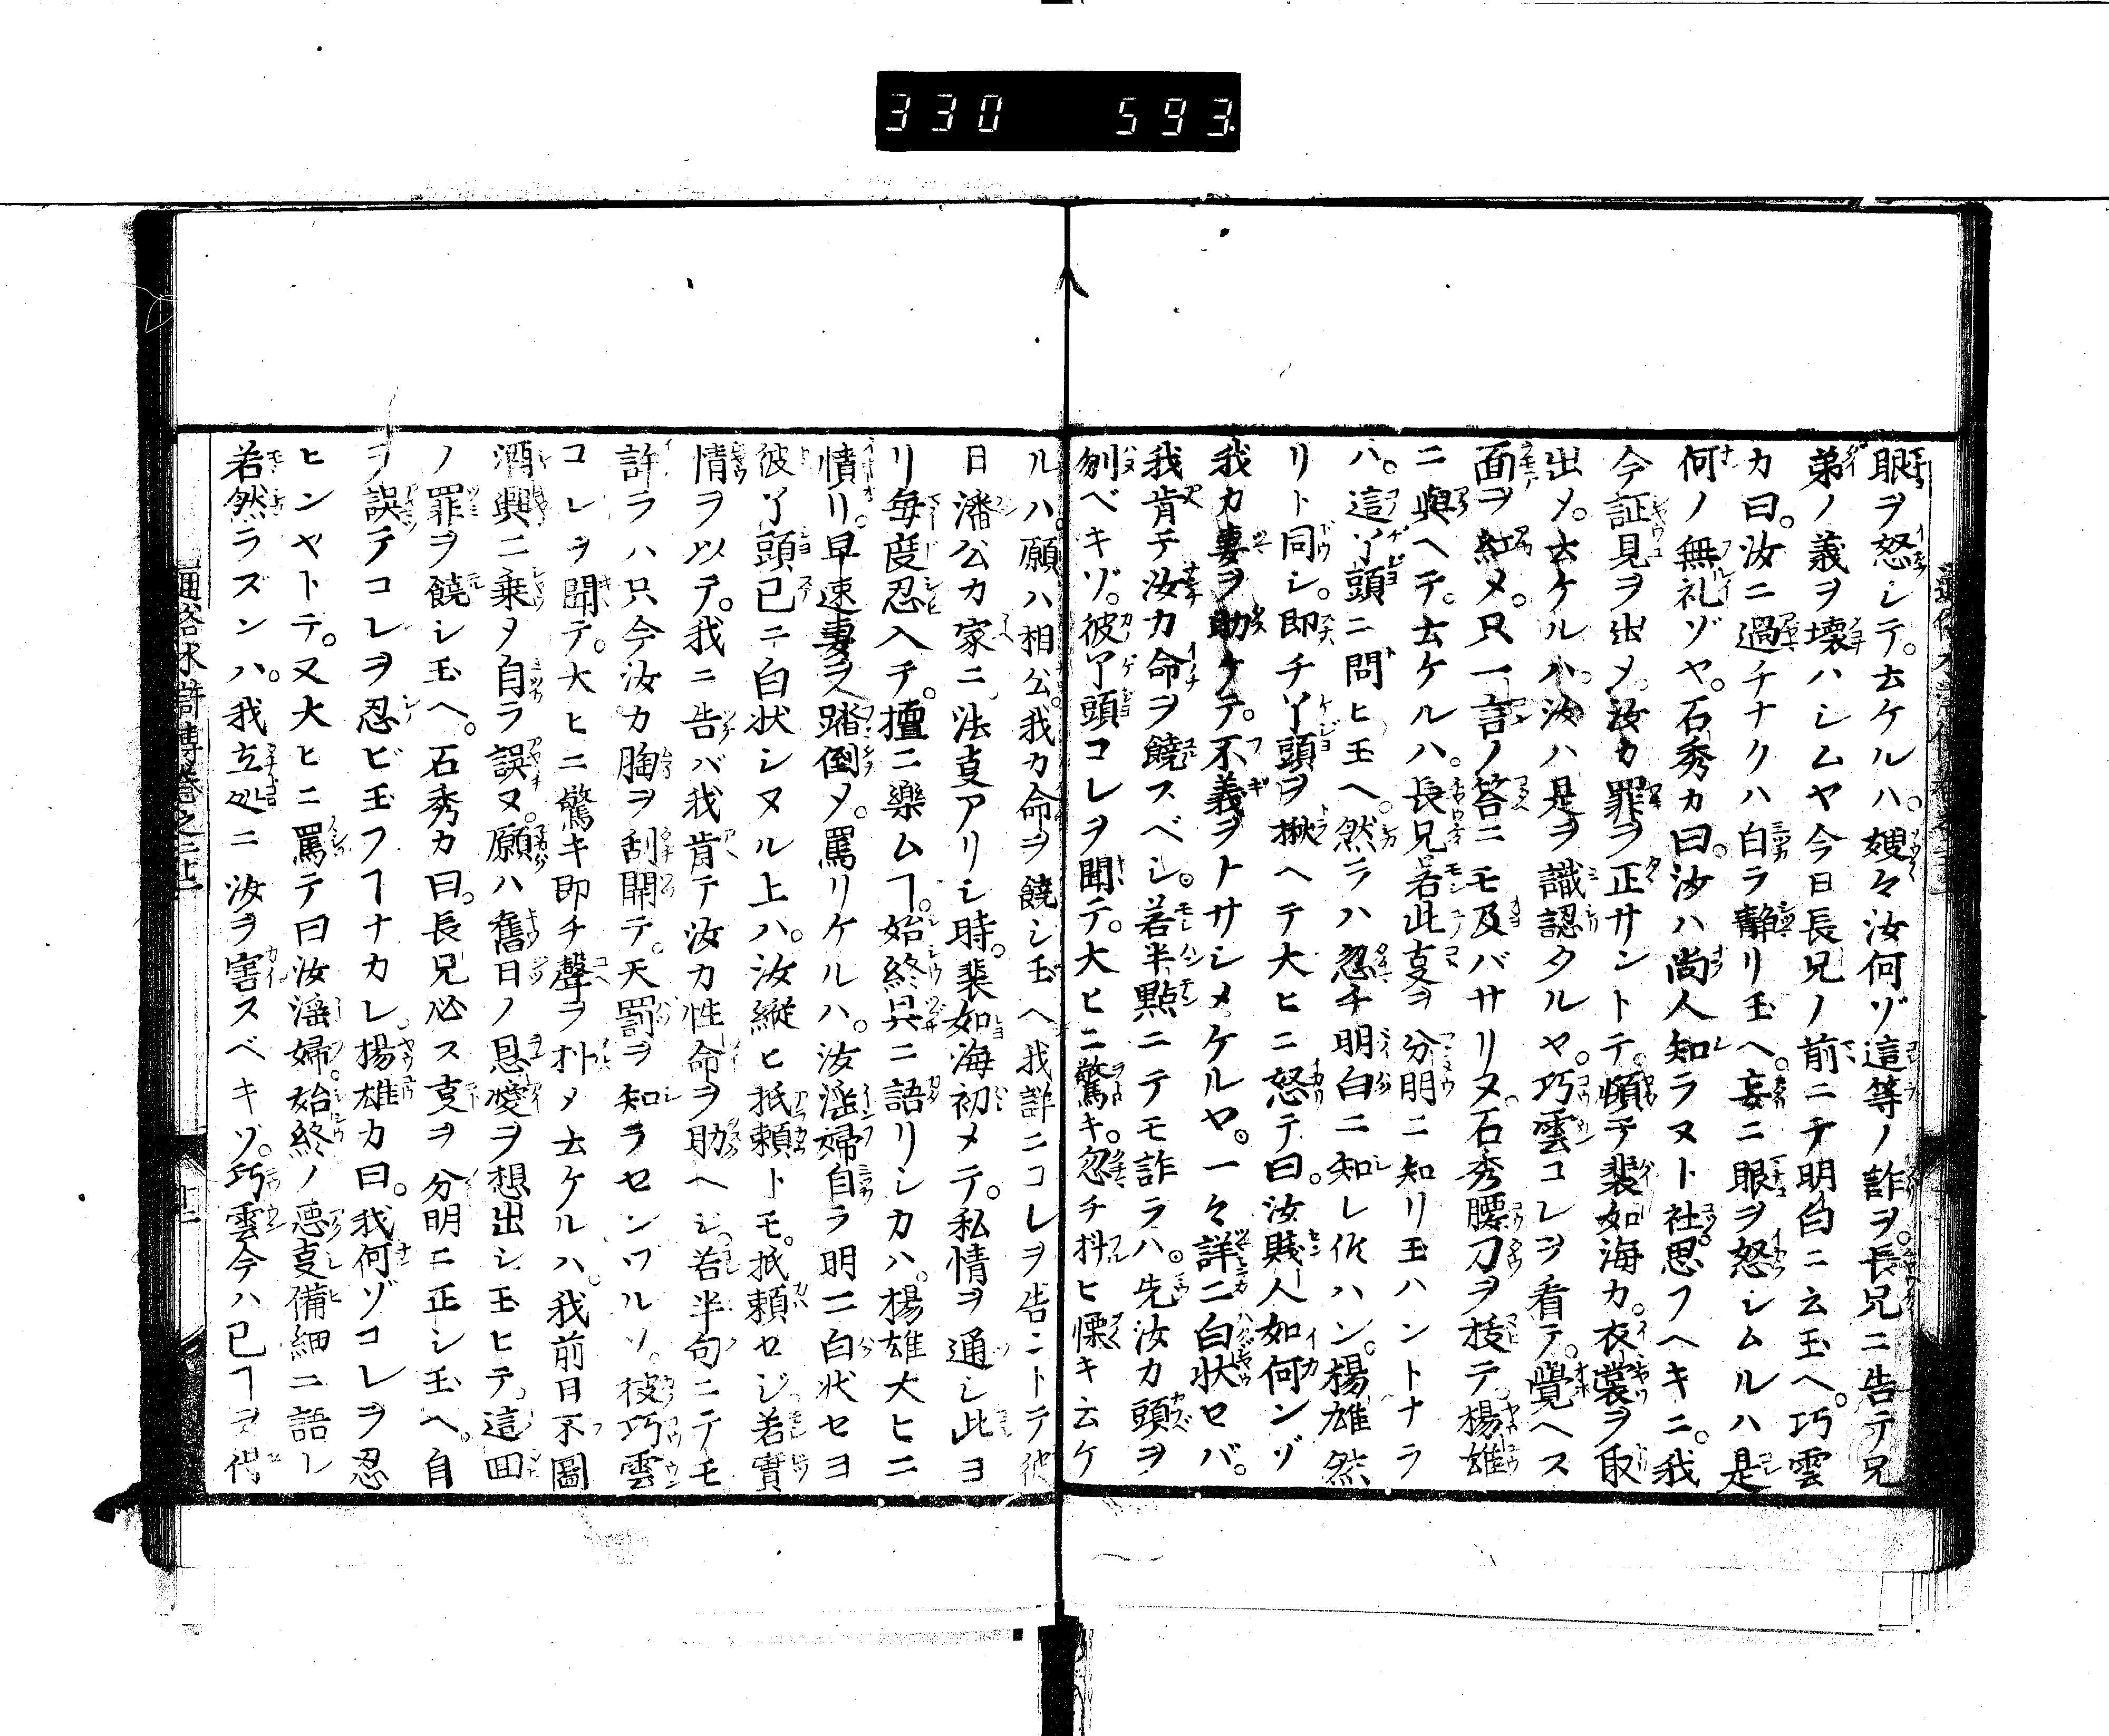 330 593
眼ヲ怒シテ。去ケルハ。嫂々汝何ゾ這等ノ詐ヲ。長兄ニ告テ兄
弟ノ義ヲ壊ハシムヤ今日長兄ノ前ニテ明白ニ云玉ヘ。巧雲
カ曰。汝ニ過チナクハ自ラ静リ玉ヘ。妄ニ眼ヲ怒シムルハ是
何ノ無礼ゾヤ。石秀カ曰。汝ハ尚人知ラヌト社思フヘキニ。我
今証見ヲ出メ。汝カ罪ヲ正サントテ。頓テ裴如海カ。衣裳ヲ取
出メ。去ケルハ。汝ハ是ヲ識認タルヤ。巧雲コレヲ看テ。覺ヘス
面ヲ紅メ。只一言ノ答ニモ及バサリヌ。石秀腰刀ヲ抜テ。楊雄
ニ與ヘテ。去ケルハ。長兄若此㕝ヲ分明ニ知リ玉ハントナラ
ハ。這丫頭ニ問ヒ玉ヘ。然ラハ忽チ明白ニ知レ侭ハン。楊雄然
リト同シ。即チ丫頭ヲ揪ヘテ大ヒニ怒テ曰。汝賎人如何ンゾ
我カ妻ヲ助ケテ。不義ヲトサシメケルヤ。一々詳ニ白状セバ。
我肯テ汝カ命ヲ饒スベシ。若半點ニテモ詐ラハ。先汝カ頭ヲ
刎ベキゾ。彼丫頭コレヲ聞テ。大ヒニ驚キ。忽チ抖ヒ慄キ云ケ
ルハ。願ハ相公。我カ命ヲ饒シ玉ヘ我詳ニコレヲ告ニトテ彼
日潘公カ家ニ。法㕝アリシ時。裴如海初メテ。私情ヲ通シ此ヨ
リ毎度忍入チ。擅ニ樂ムヿ。始終具ニ語リシカハ。楊雄大ヒニ
憤リ。早速妻ヲ踏倒メ。罵リケルハ。汝淫婦自ラ明ニ白状セヨ
彼丫頭已ニ白状シヌル上ハ。汝縦ヒ抵頼トモ。抵頼セジ若實
情ヲ以テ。我ニ告バ我肯テ汝カ性命ヲ助ヘシ。若半句ニテモ
詐ラハ只今汝カ胸ヲ刮開テ。天罰ヲ知ラセンワルソ。彼巧雲
コレヲ聞テ。大ヒニ驚キ即チ聲ヲ朴メ去ケルハ。我前日不圖
酒興ニ乗メ自ラ誤ヌ。願ハ舊日ノ恩愛ヲ想出シ玉ヒテ。這回
ノ罪ヲ饒シ玉ヘ。石秀カ曰。長兄必ス㕝ヲ分明ニ正シ玉ヘ。自
ヲ誤テコレヲ忍ビ玉フヿナカレ。楊雄カ曰。我何ゾコレヲ忍
ヒンヤトテ。又大ヒニ罵テ曰汝淫婦。始終ノ悪㕝備細ニ語レ
若然ラズンハ。我立処ニ汝ヲ害スベキゾ。巧雲今ハ已ヿヲ得
通俗水滸傳巻之二十一